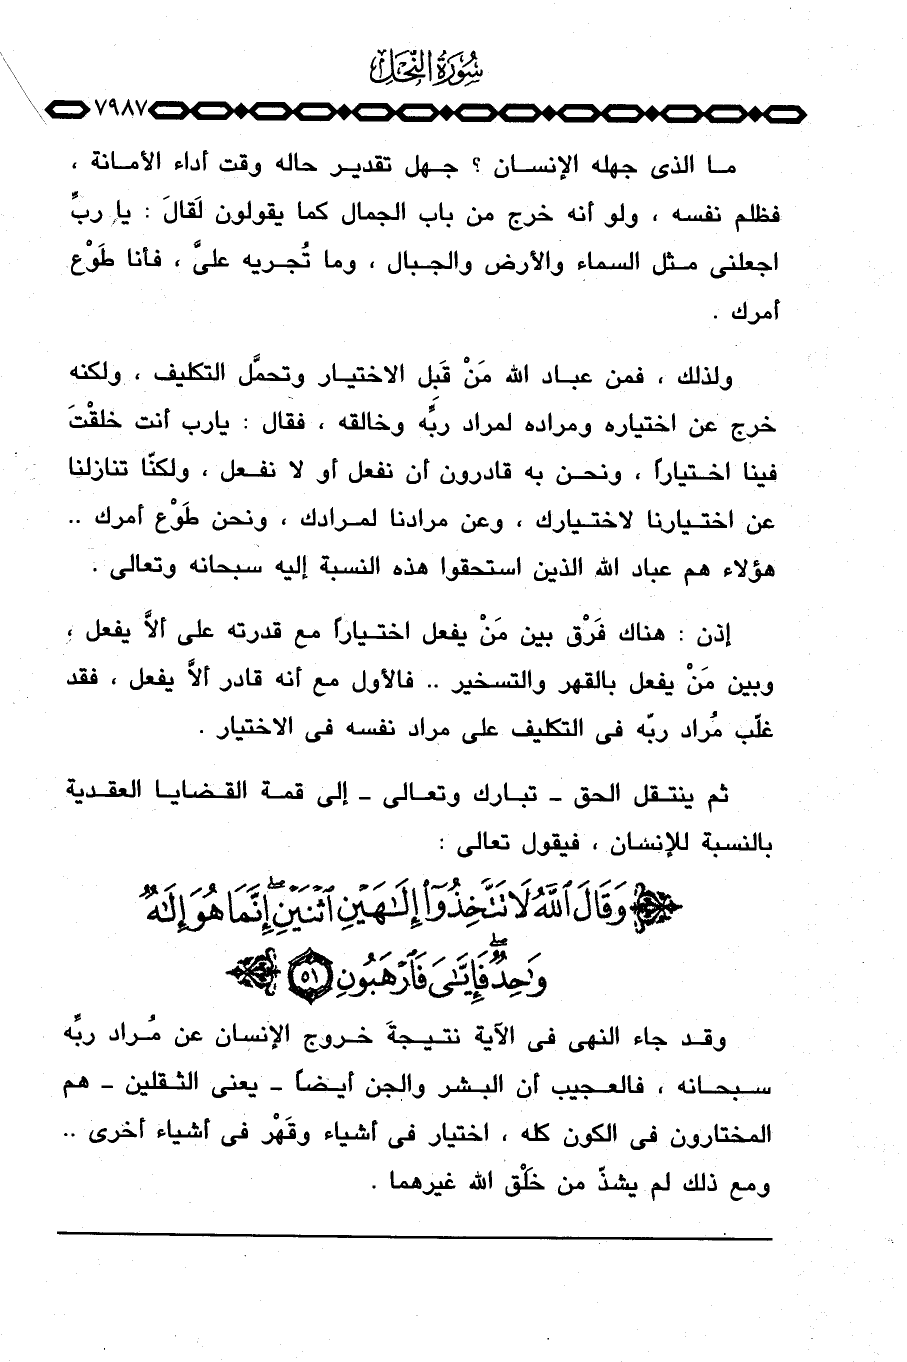 سُورَةُ النَّحْلِ
٧٩٨٧
ما الذى جهله الإنسان ؟ جهل تقدير حاله وقت أداء الأمانة ،
فظلم نفسه ، ولو أنه خرج من باب الجمال كما يقولون لَقالَ : يا ربِّ
اجعلنى مثل السماء والأرض والجبال ، وما تُجريه علىَّ ، فأنا طَوْع
أمرك .
ولذلك ، فمن عباد الله مَنْ قَبِل الاختيار وتحمَّل التكليف ، ولكنه
خرج عن اختياره ومراده لمراد ربِّه وخالقه ، فقال : يارب أنت خلقْتَ
فينا اختياراً ، ونحن به قادرون أن نفعل أو لا نفعل ، ولكنّا تنازلنا
عن اختيارنا لاختيارك ، وعن مرادنا لمرادك ، ونحن طَوْع أمرك ..
هؤلاء هم عباد الله الذين استحقوا هذه النسبة إليه سبحانه وتعالى .
إذن : هناك فَرْق بين مَنْ يفعل اختياراً مع قدرته على ألاَّ يفعل ،
وبين مَنْ يفعل بالقهر والتسخير .. فالأول مع أنه قادر ألاَّ يفعل ، فقد
غلّب مُراد ربّه فى التكليف على مراد نفسه فى الاختيار .
ثم ينتقل الحق - تبارك وتعالى - إلى قمة القضايا العقدية
بالنسبة للإنسان ، فيقول تعالى :
وَقَالَ ٱللَّهُ لَا تَتَّخِذُوٓا۟ إِلَـٰهَيْنِ ٱثْنَيْنِ ۖ إِنَّمَا هُوَ إِلَـٰهٌ
وَٰحِدٌ ۖ فَإِيَّـٰىَ فَٱرْهَبُونِ ٥١
وقد جاء النهى فى الآية نتيجةَ خروج الإنسان عن مُراد ربِّه
سبحانه ، فالعجيب أن البشر والجن أيضاً - يعنى الثقلين - هم
المختارون فى الكون كله ، اختيار فى أشياء وقَهْر فى أشياء أخرى ..
ومع ذلك لم يشذّ من خَلْق الله غيرهما .